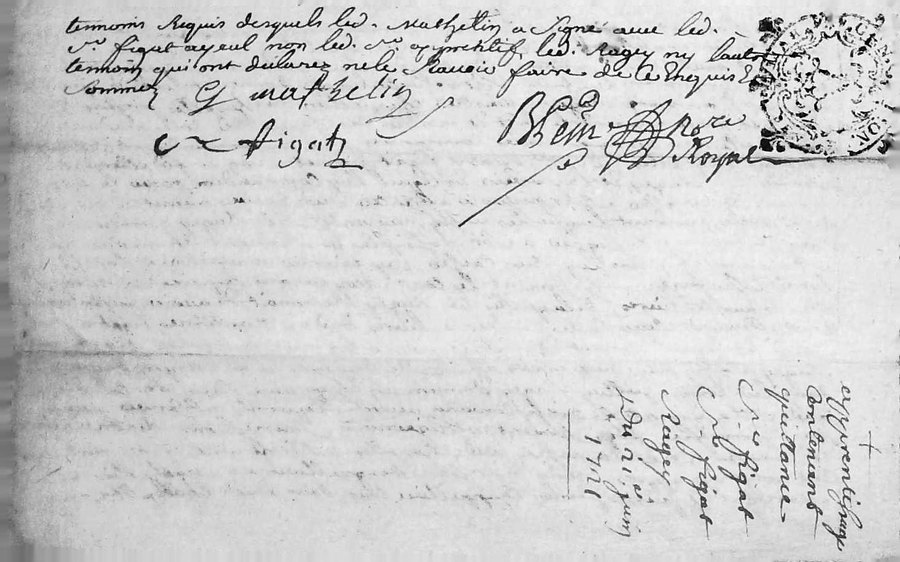 temoins Requis desquels led. Mathelin a signé avec led.
Sr. figat ayeul non led. Sr. led. Ragey ny lautre
temoin qui ont declarez ne le Scavoir faire de ce Enquis Et
Sommez
G mathelin
figat
Nore
Royal
GEN
apprentissage
contenant
quittance
figat
figat
Ragey
Du juin
1721